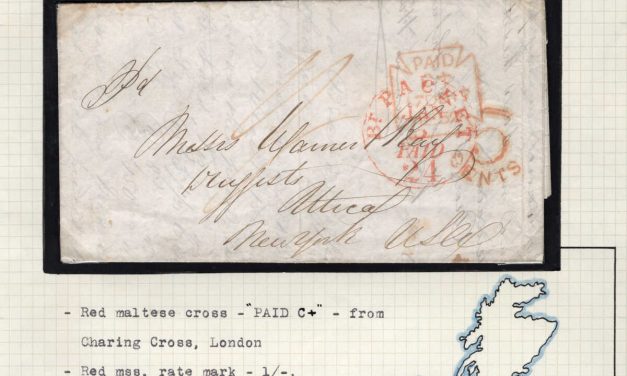 Pd
PAID
BR PACKET
PAID
24
5
CENTS
Messrs Warner &
Druggists
Attica
New York USA
- Red maltese cross -"PAID C+" - from
Charing Cross, London
- Red mss. rate mark - 1/-.